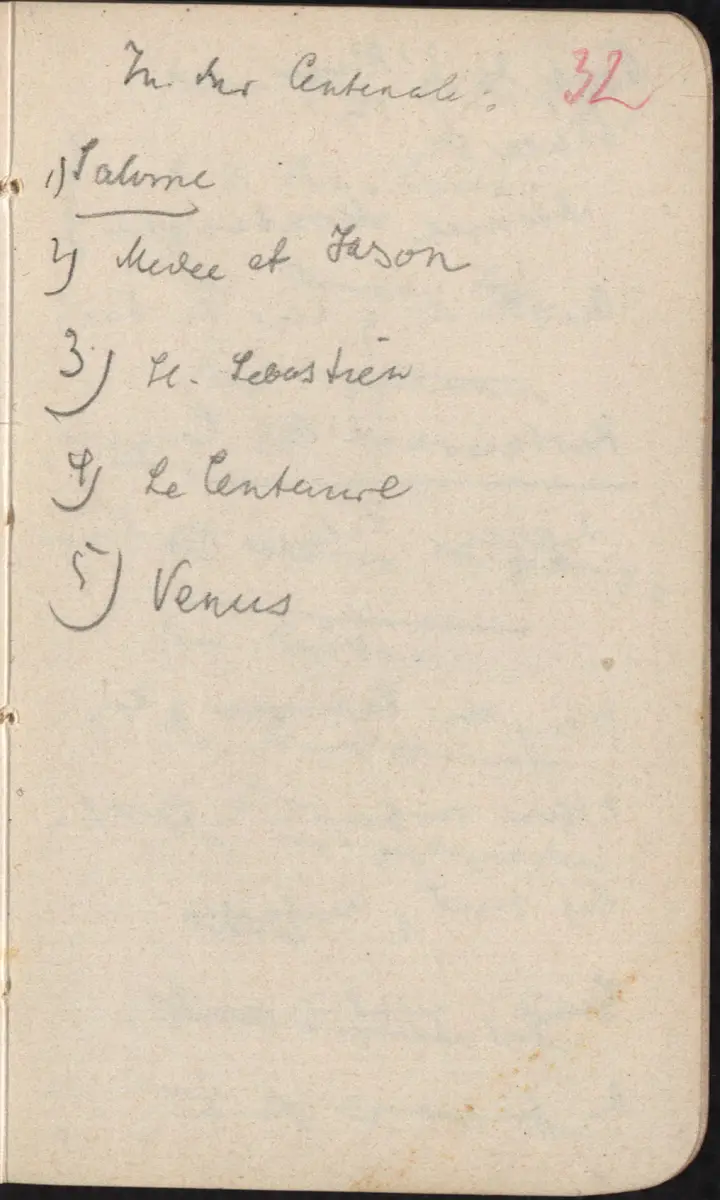 In der Centenale: 32
1) Salome
2) Medee et Jason
3) St. Sebastien
4) Le Centaure
5) Venus